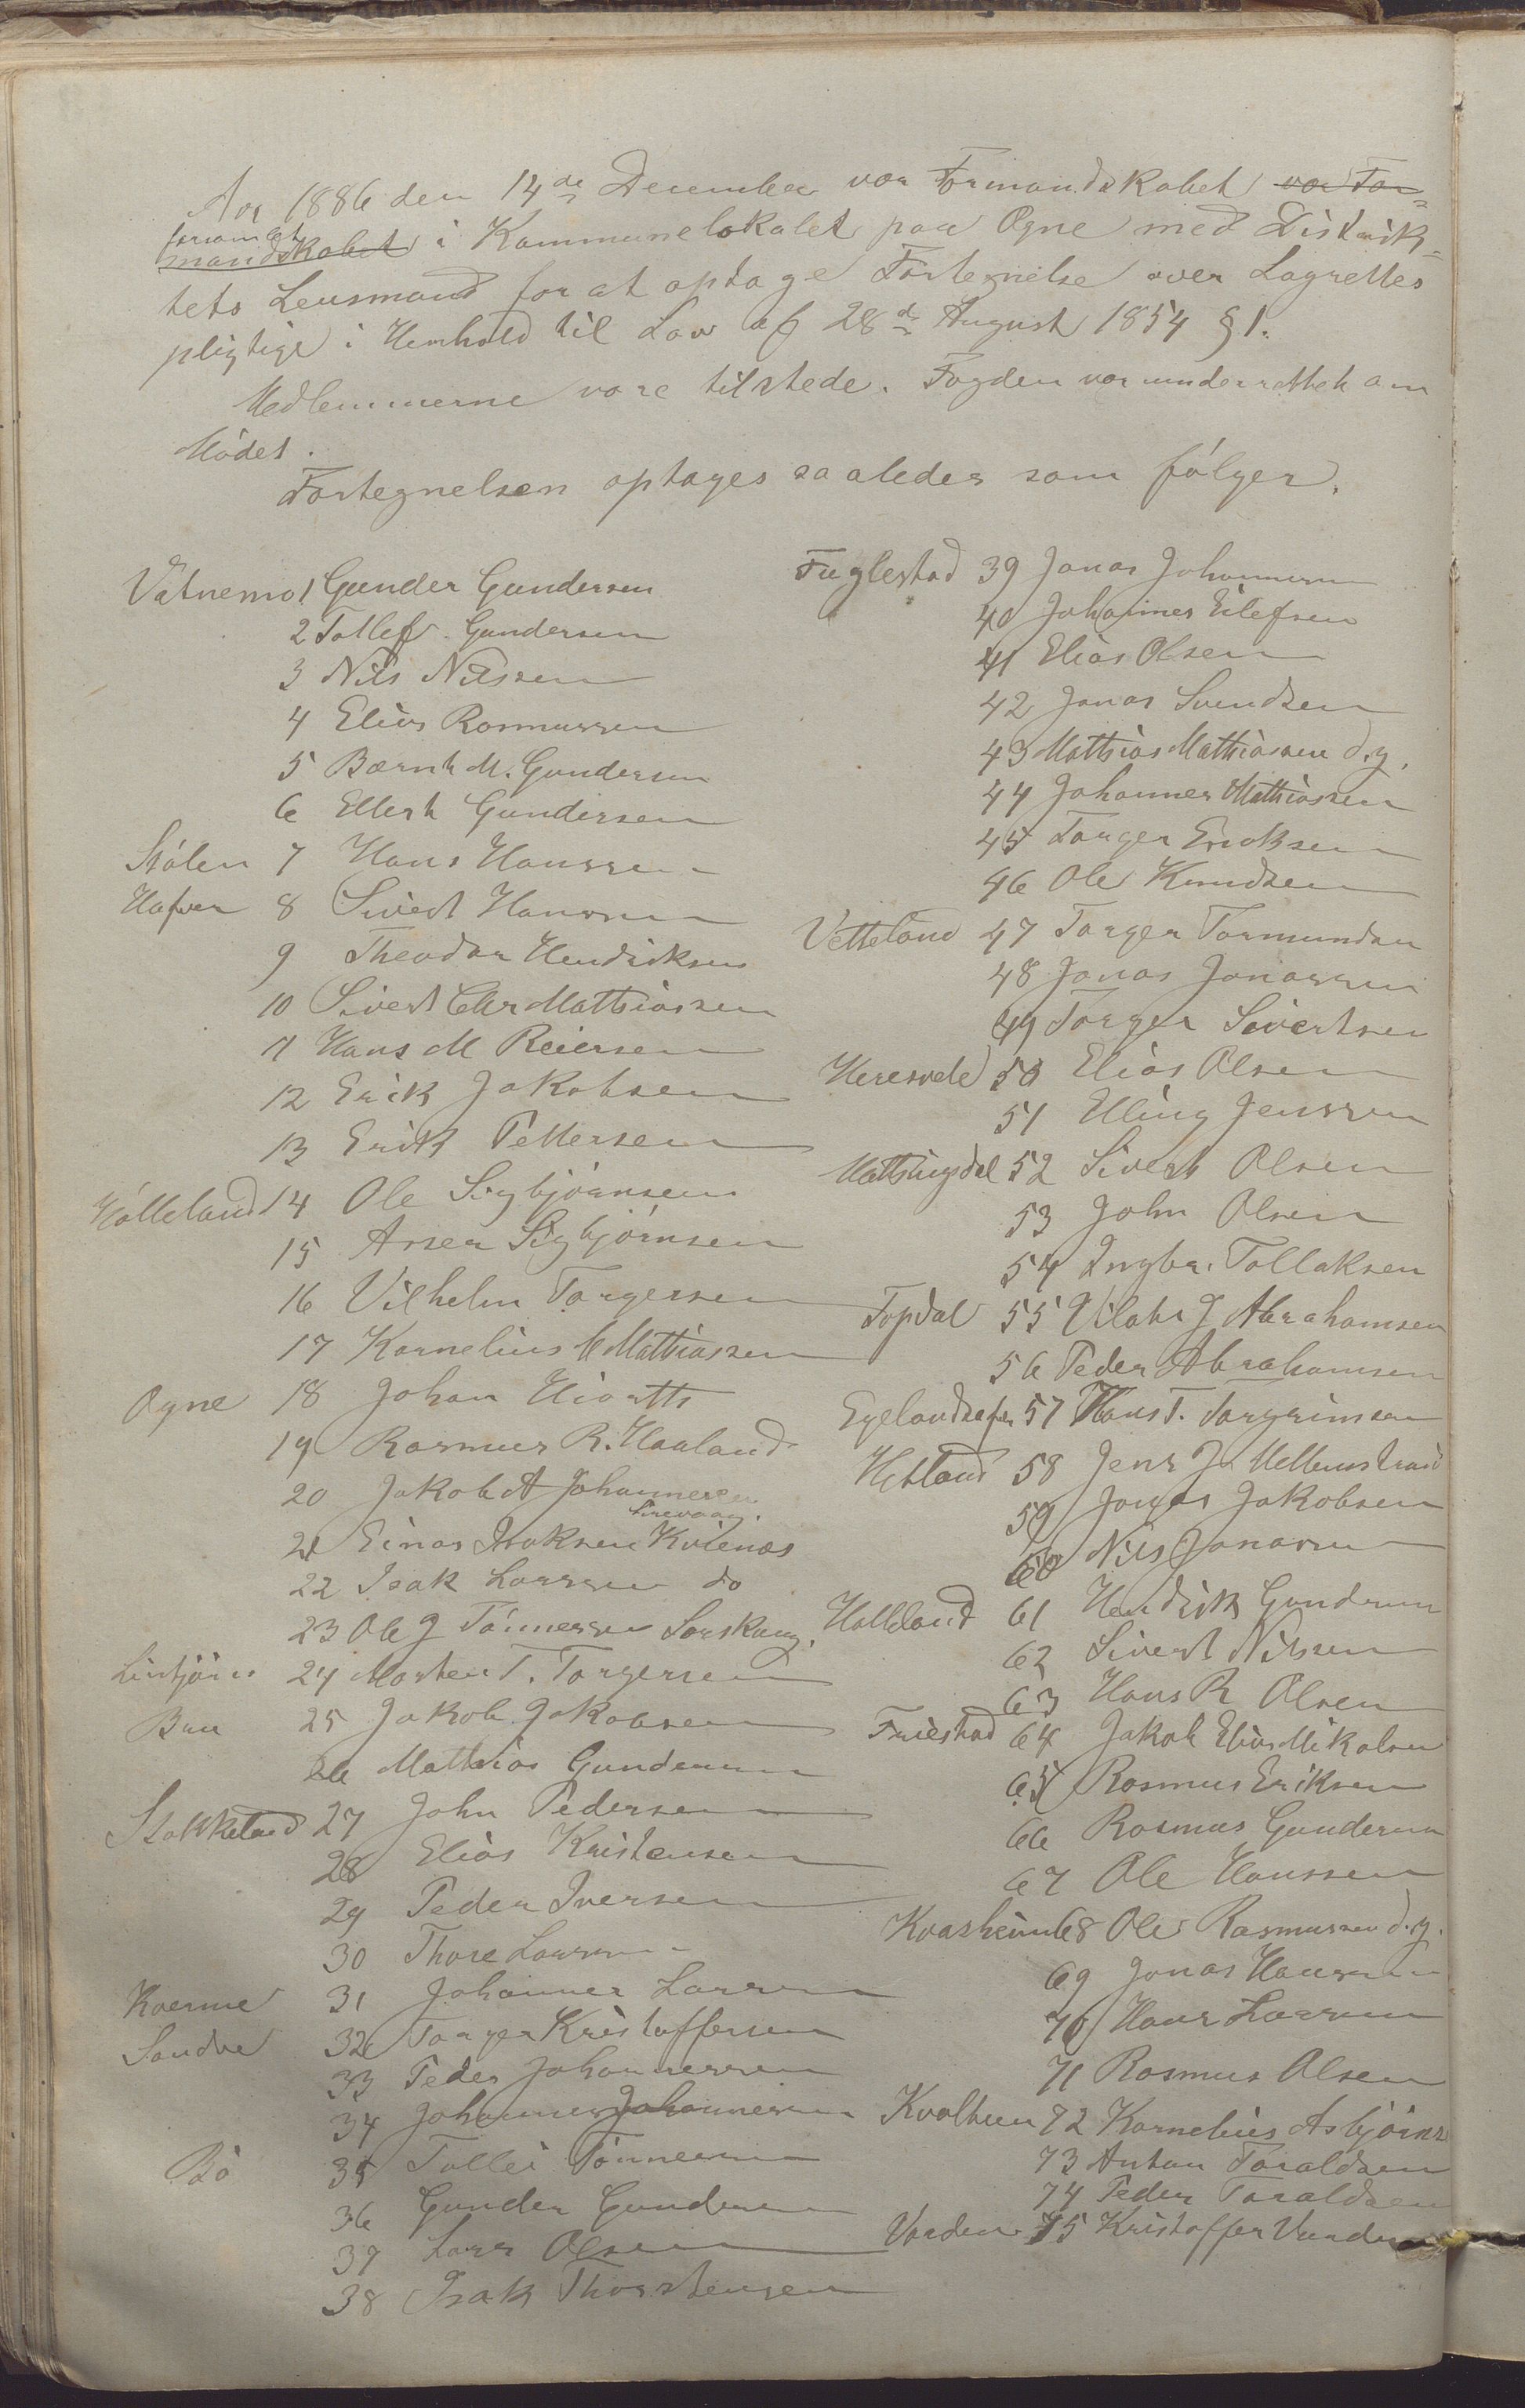 Aar 1886 den 14de December var Formandskabet var For-
mandskabet forsamlet i Kommunelokalet paa Ogne med Distrik-
tets Lensmand for at optage Fortegnelse over Lagrettes
pligtige i Henhold til Lov af 28de August 1854 § 1.
Medlemmerne vare tilstede. Fogden var underrettet om
Mødet.
Fortegnelsen optages saaledes som følger.
Vatnemo 1 Gunder Gundersen
2 Tollef Gundersen
3 Nils Nilssen
4 Elias Rasmussen
5 Bernt M. Gundersen
6 Ellert Gundersen
Stølen 7 Hans Hanssen
8 Sivert Hanssen
9 Theodor Hendriksen
10 Sivert Chr Mathiassen
11 Hans M Reiersen
12 Erik Jakobsen
13 Erik Pettersen
Hølleland 14 Ole Sigbjørnsen
15 Asser Sigbjørnsen
16 Vilhelm Torgersen
17 Kornelius M Mathiassen
Ogne 18 Johan Hiorth
19 Rasmus R. Haaland
20 Jakob A Johannesen
Sirevaag.
21 Einar Isaksen Kvienæs
22 Isak Larssen do
23 Ole J Tønnessen
24 Morten T. Torgersen
Bru 25 Jakob Jakobsen
26 Mathias Gundersen
Stokkeland 27 John Pedersen
28 Elias Kristensen
29 Peder Iversen
30 Thore Larssen
31 Johannes Larssen
Sandve 32 Torger Kristoffersen
33 Peder Johannessen
34 Johannes Johannessen
Bø 35 Tollei Tønnessen
36 Gunder Gundersen
37 Lars Olsen
38 Isak Thorstensen
Fuglestad 39 Jonas Johannessen
40 Johannes Eilefsen
41 Elias Olsen
42 Jonas Svendsen
43 Mathias Mathiassen d.y.
44 Johannes Mathiassen
45 Torger Eriksen
46 Ole Knudsen
Vetteland 47 Torger Tormundsen
48 Jonas Jonassen
49 Torger Sivertsen
50 Elias Olsen
51 Elling Jenssen
Mattingsdal 52 Sivert Olsen
53 John Olsen
54 Ingbr. Tollaksen
Topdal 55 J Abrahamsen
56 Peder Abrahamsen
57 Hans T. Torgrimsen
Hetland 58 Jens J. Mellemstrand
59 Jonas Jakobsen
60 Nils Jonassen
Helleland 61 Hendrik Gundersen
62 Sivert Nilssen
63 Hans R Olsen
Friestad 64 Jakob Elias Mikalsen
65 Rasmus Eriksen
66 Rasmus Gundersen
67 Ole Hanssen
Kvasheim 68 Ole Rasmussen d.y.
69 Jonas Hanssen
70 Hans Larssen
71 Rasmus Olsen
Kvalheim 72 Kornelius Asbjørns
73 Anton Taraldsen
74 Peder Taraldsen
Varden 75 Kristoffer Varden